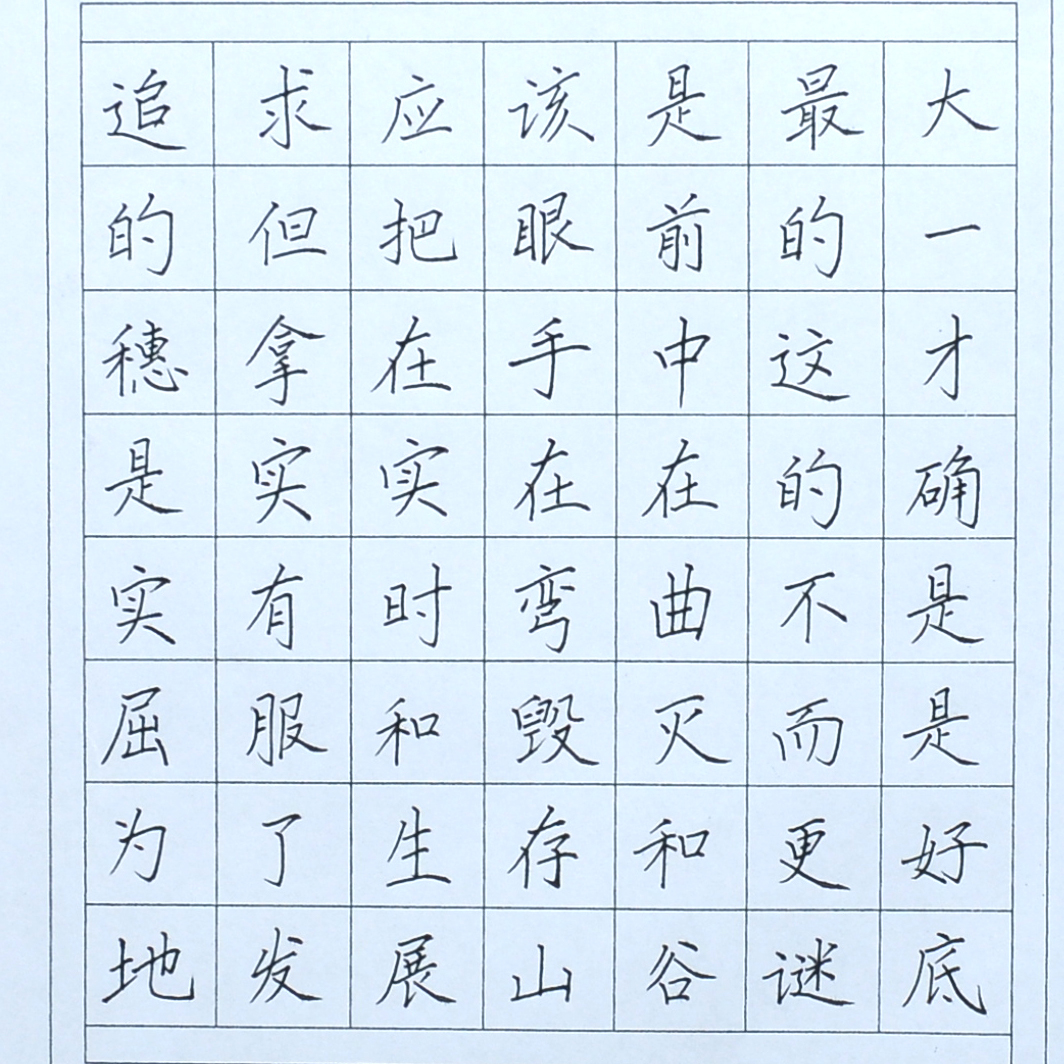 追求应该是最大
的但把眼前的一
穗拿在手中这才
是实实在在的确
实有时弯曲不是
屈服和毁灭而是
为了生存和更好
地发展山谷谜底